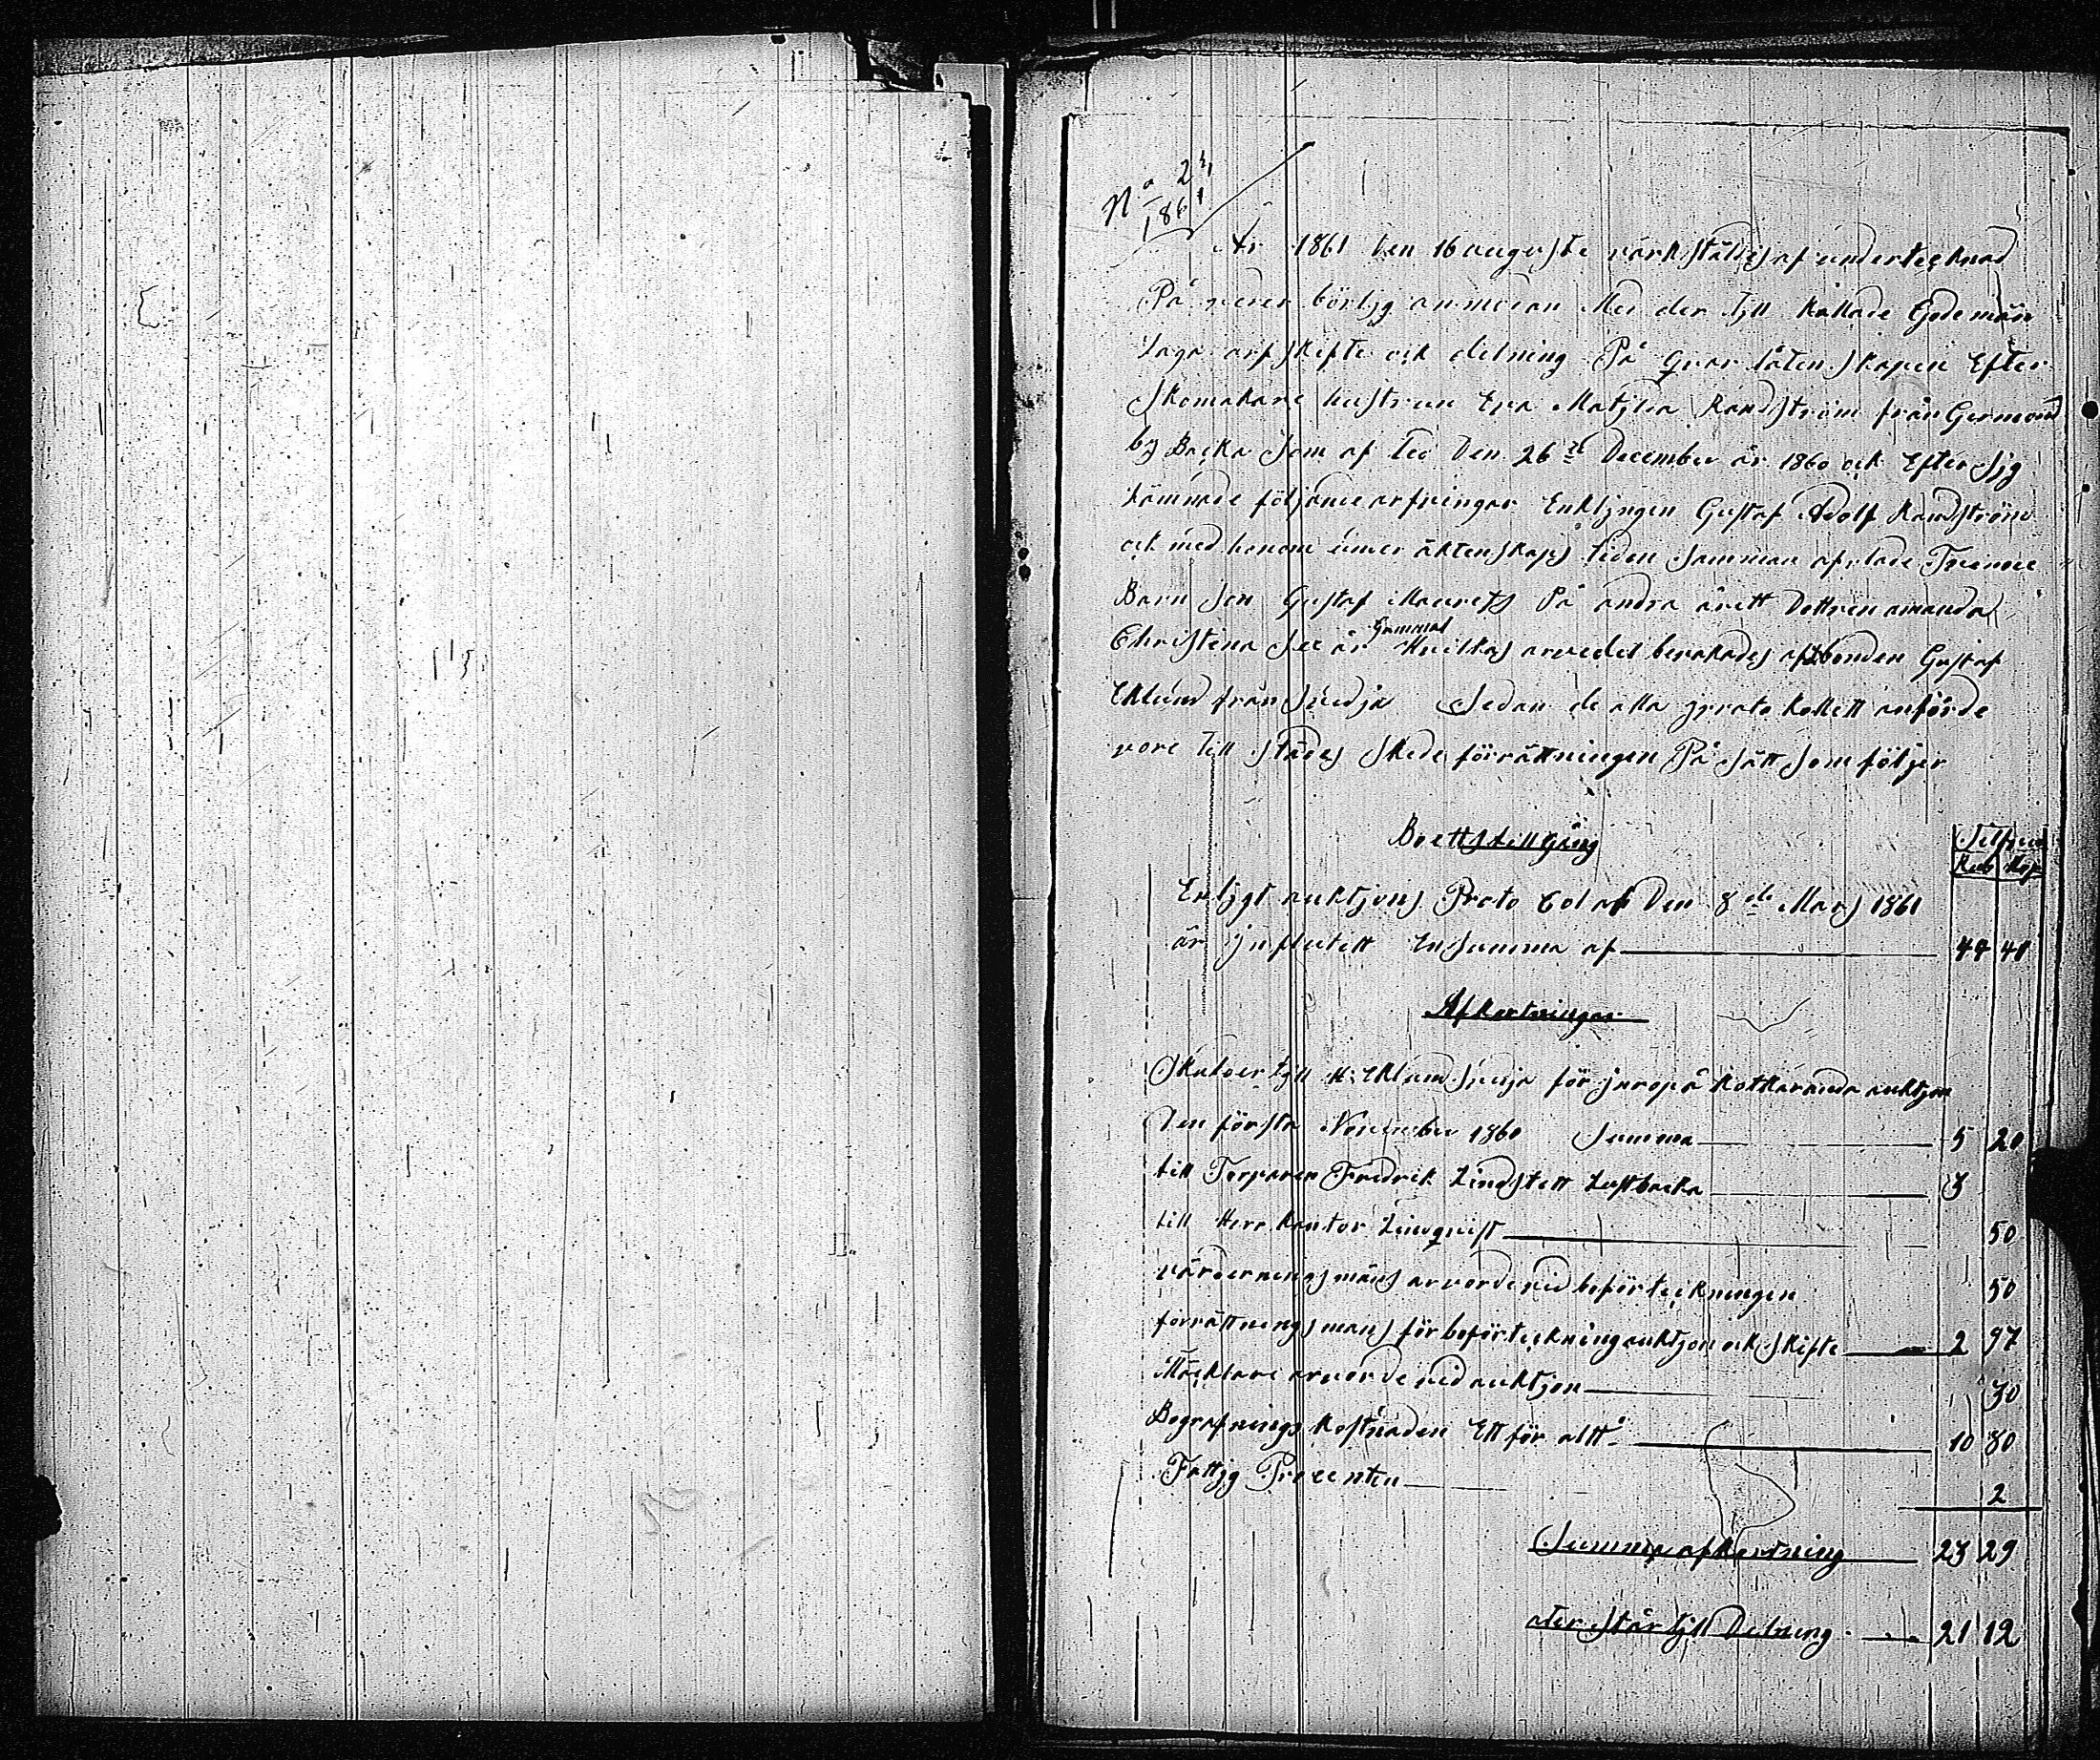 No 24
1861
År 1861 den 16 auguste värkstäldes af undertecknad
På derer börlyg anmälan Med der tyll kallade Gode män
Laga arfskifte ock delning På qvar låtenskapen Efter
Skomakare hustrun Eva Matjlda Randström från Germund
by Backa som af led Den 26de December år 1860 ock Efter sjg
lämnade följande arfvingar Enkljngen Gustaf Adolf Randström
ock med honom under äktenskaps tiden samman aflade Trenne
Barn son Gustaf Mauretz På andra årett Dottren amanda
Christena sex år Gammal Hvilkas arvedel bevakades af bonden Gustaf
Eklund från smedja Sedan de alla j protokollett anförde
vore till städes skede förrättningen På sätt som följer
Boetts tillgång
Silfver
Rub Kop
Enljgt auktjons Proto Col af Den 8de Mars 1861
är jnflutett En summa af 44 40
Afkortningar
Skulder tyll H: Eklund smedja för jnrop å Kottkaranda auktjon
Den första November 1860 Summa 5 20
till Torparen Fredrik Lindstett Lustbacka 3
till Herr Kantor Lindqvist 50
värdernings mäns arvorde vid boförteckningen 50
förrättnings mans för boförteckning auktjon ock skifte 2 97
Mäcklare arvorde vid auktjon 30
Begrafnings kostnaden Ett för altt 10 80
Fattjg Procenten 2
Summa afkortning 23 29
åter står tyll Delning 21 12